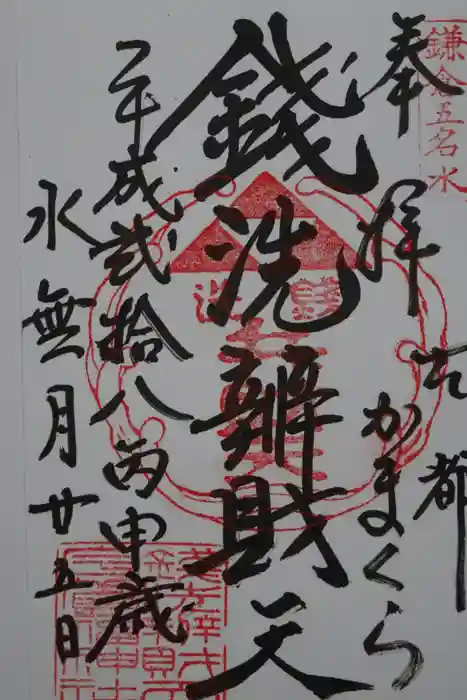 鎌倉五名水
奉拝
古都
かまくら
銭洗辨財天
平成貳拾八丙申歳
水無月廿五日